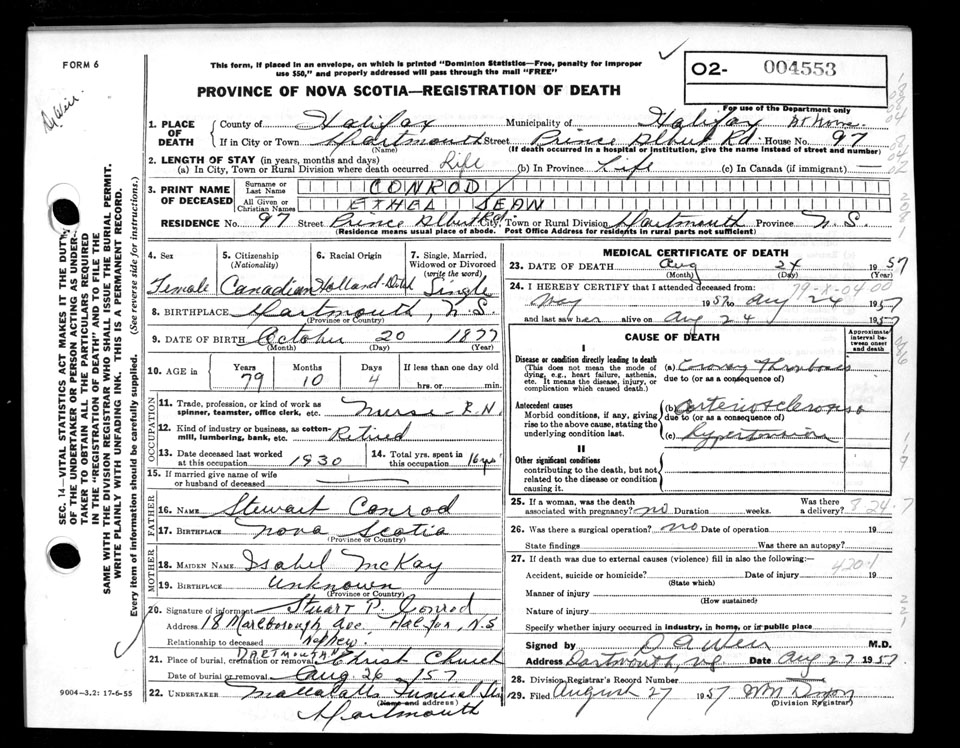 FORM 6
This form, if placed in an envelope, on which is printed "Dominion Statistics—Free, penalty for improper
use $50," and properly addressed will pass through the mail "FREE"
O2- 004553
For use of the Department only
PROVINCE OF NOVA SCOTIA—REGISTRATION OF DEATH
D A Weir.
SEC. 14—VITAL STATISTICS ACT MAKES IT THE DUTY
OF THE UNDERTAKER OR PERSON ACTING AS UNDER-
TAKER TO OBTAIN ALL THE PARTICULARS REQUIRED
IN THE "REGISTRATION OF DEATH" AND TO FILE THE
SAME WITH THE DIVISION REGISTRAR WHO SHALL ISSUE THE BURIAL PERMIT.
WRITE PLAINLY WITH UNFADING INK. THIS IS A PERMANENT RECORD.
Every item of information should be carefully supplied. (See reverse side for instructions.)
9004-3.2: 17-6-55
1. PLACE OF DEATH
County of Halifax Municipality of Halifax At Home
If in City or Town Dartmouth Street Prince Albert Rd. House No. 97
(Name) (If death occurred in a hospital or institution, give the name instead of street and number)
2. LENGTH OF STAY (in years, months and days)
(a) In City, Town or Rural Division where death occurred Life (b) In Province Life (c) In Canada (if immigrant) —
3. PRINT NAME OF DECEASED
Surname or Last Name CONROD
All Given or Christian Names ETHEL JEAN
RESIDENCE No. 97 Street Prince Albert Rd. City, Town or Rural Division Dartmouth Province N.S.
(Residence means usual place of abode. Post Office Address for residents in rural parts not sufficient)
4. Sex
5. Citizenship (Nationality)
6. Racial Origin
7. Single, Married, Widowed or Divorced (write the word)
Female Canadian Holland-Dutch Single
8. BIRTHPLACE Dartmouth, N.S.
(Province or Country)
9. DATE OF BIRTH October 20 1877
(Month) (Day) (Year)
10. AGE in Years Months Days If less than one day old
79 10 4 hrs. or min.
OCCUPATION
11. Trade, profession, or kind of work as spinner, teamster, office clerk, etc. Nurse - R.N.
12. Kind of industry or business, as cotton-mill, lumbering, bank, etc. Retired
13. Date deceased last worked at this occupation 1930
14. Total yrs. spent in this occupation 16 yrs
15. If married give name of wife or husband of deceased —
FATHER
16. NAME Stewart Conrod
17. BIRTHPLACE Nova Scotia
(Province or Country)
MOTHER
18. MAIDEN NAME Isabel McKay
19. BIRTHPLACE Unknown
(Province or Country)
20. Signature of informant Stuart P. Conrod
Address 18 Marlborough Ave. Halifax, N.S
Relationship to deceased nephew
21. Place of burial, cremation or removal DARTMOUTH Christ Church
Date of burial or removal Aug. 26/57
22. UNDERTAKER Mattatalls Funeral
(Name and address)
Dartmouth
MEDICAL CERTIFICATE OF DEATH
23. DATE OF DEATH Aug 24 1957
(Month) (Day) (Year)
79-X-0400
24. I HEREBY CERTIFY that I attended deceased from:
May 1957 to Aug 24 1957
and last saw her alive on Aug 24 1957
CAUSE OF DEATH
Approximate interval between onset and death
I
Disease or condition directly leading to death
(This does not mean the mode of dying, e.g., heart failure, asthenia, etc. It means the disease, injury, or complication which caused death.)
(a) Coronary Thrombosis
due to (or as a consequence of)
Antecedent causes
Morbid conditions, if any, giving rise to the above cause, stating the underlying condition last.
(b) Arteriosclerosis
due to (or as a consequence of)
(c) Hypertension
II
Other significant conditions
contributing to the death, but not related to the disease or condition causing it.
25. If a woman, was the death associated with pregnancy? no Duration weeks. Was there a delivery?
26. Was there a surgical operation? no Date of operation 19
State findings Was there an autopsy?
27. If death was due to external causes (violence) fill in also the following:—
420.1
Accident, suicide or homicide? Date of injury 19
(State which)
Manner of injury
(How sustained)
Nature of injury
Specify whether injury occurred in industry, in home, or in public place
Signed by D A Weir M.D.
Address Dartmouth, NS Date Aug 27 1957
28. Division Registrar's Record Number
29. Filed August 27 1957 Wm Dixon
(Division Registrar)